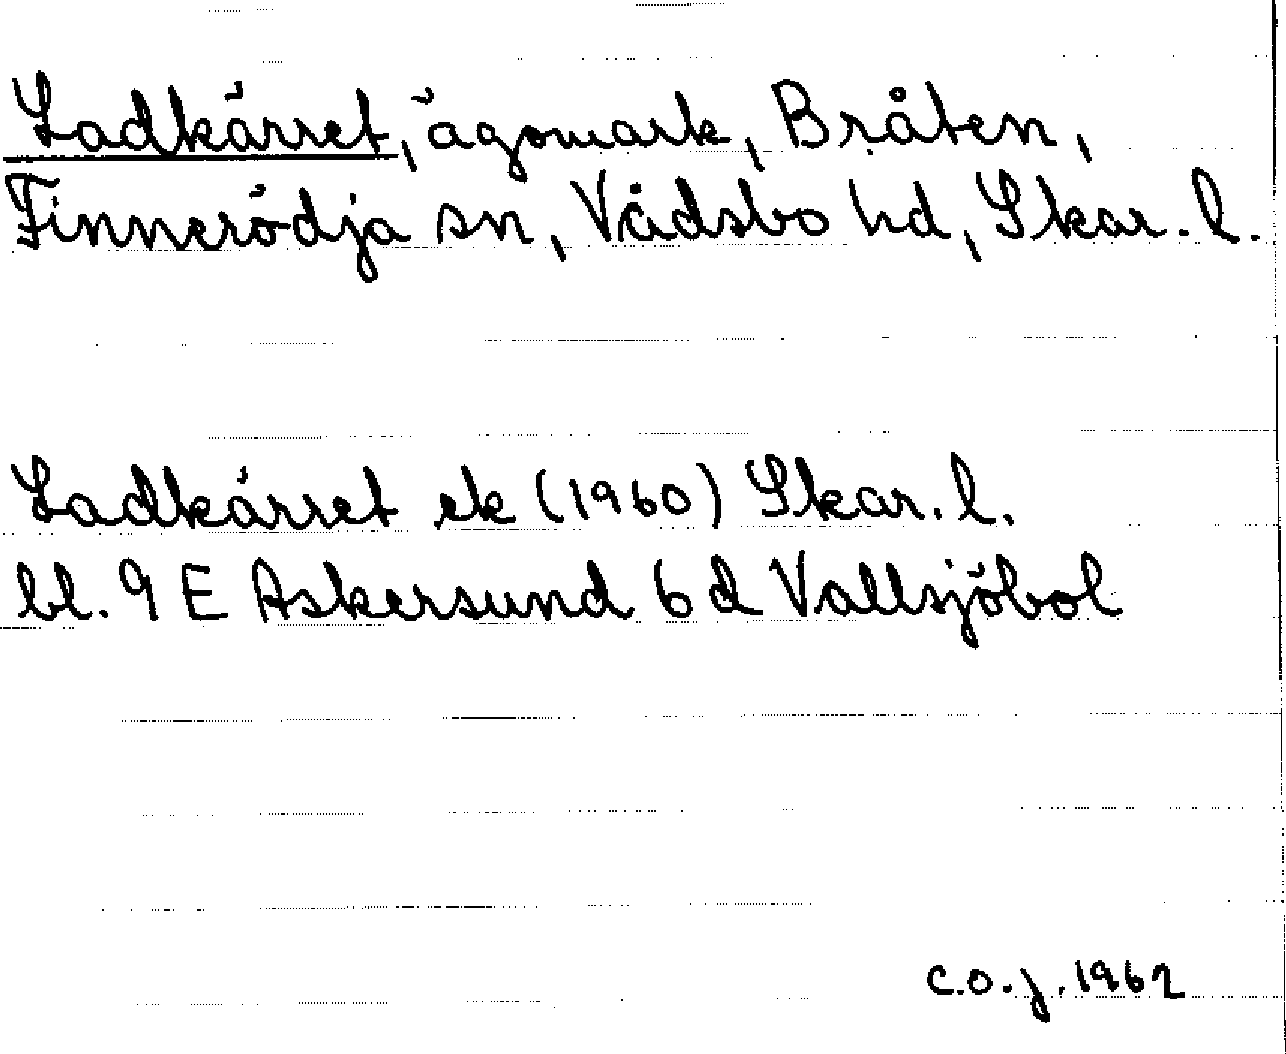 Ladkärret, ägomark, Bråten,
Finnerödja sn, Vådsbo hd, Skar. l.
Ladkärret ek (1960) Skar. l.
bl. 9 E Askersund 6 d Vallsjöbol
C.O.J. 1962